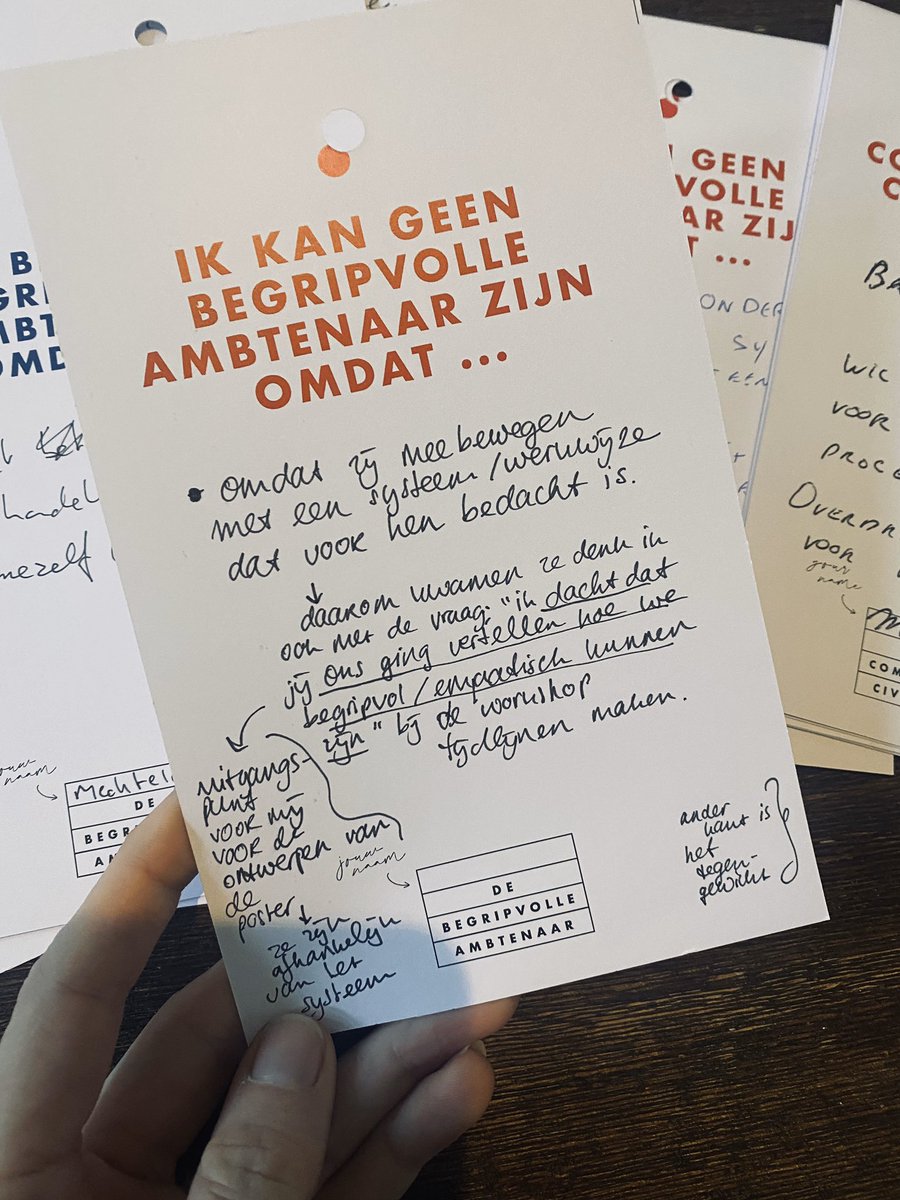 IK KAN GEEN
BEGRIPVOLLE
AMBTENAAR ZIJN
OMDAT ...
• omdat zij meebewegen
met een systeem/werkwijze
dat voor hen bedacht is.
↓
daarom kwamen ze denk ik
ook met de vraag: "ik dacht dat
jij ons ging vertellen hoe we
begripvol/empatisch kunnen
zijn" bij de workshop
tijdlijnen maken.
uitgangs-
punt
voor mij
voor de
ontwerpen van
de
poster
↓
ze zijn
afhankelijk
van het
systeem
jouw
naam
DE
BEGRIPVOLLE
AMBTENAAR
ander
kant is
het
tegen-
gewicht
handel
mezelf
jouw
naam
Mechtel
DE
BEGR
AM
GEEN
VOLLE
AR ZIJ
...
ONDER
SY
EEN
CO
C
BA
WIC
VOOR
PROCE
OVERDR
VOOR
your
name
COM
CIV